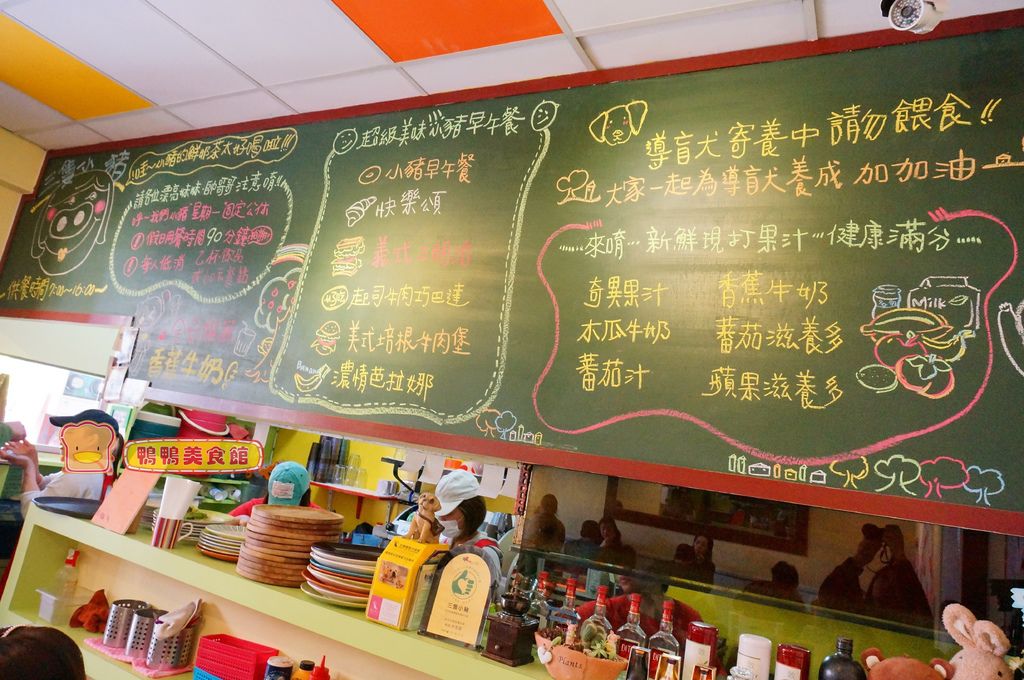 三隻小豬
哇~小豬的鮮奶茶太好喝啦!!!
請各位漂亮妹妹、帥哥哥注意唷!!
我們小豬"星期一"固定公休
① 假日用餐時間90分鐘
② 每人低消
供餐時間7:00~16:00~
香蕉牛奶
超級美味小豬早午餐
小豬早午餐
快樂頌
義式
起司牛肉巧巴達
美式培根牛肉堡
Banana
濃情芭拉娜
導盲犬寄養中 請勿餵食!!
大家一起為導盲犬養成 加加油
.....來唷...新鮮現打果汁...健康滿分.....
奇異果汁 香蕉牛奶
木瓜牛奶 蕃茄滋養多
蕃茄汁 蘋果滋養多
Milk
鴨鴨美食館
三隻小豬
Plants